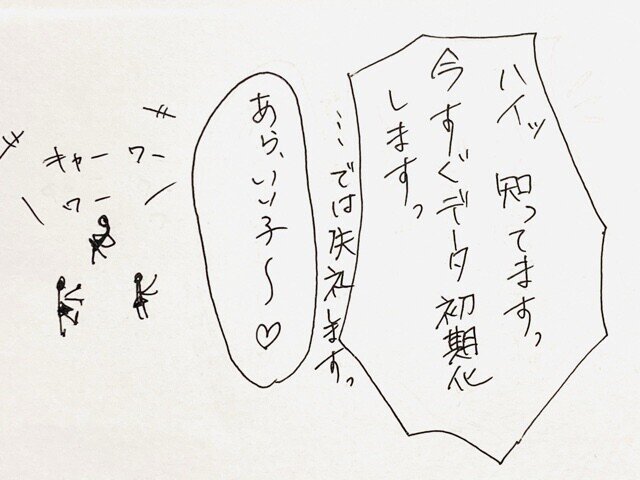 ハイッ 知ってます。
今すぐデータ初期化
します。
…では失礼します。
あら、いい子～♡
キャー ワー
ワー